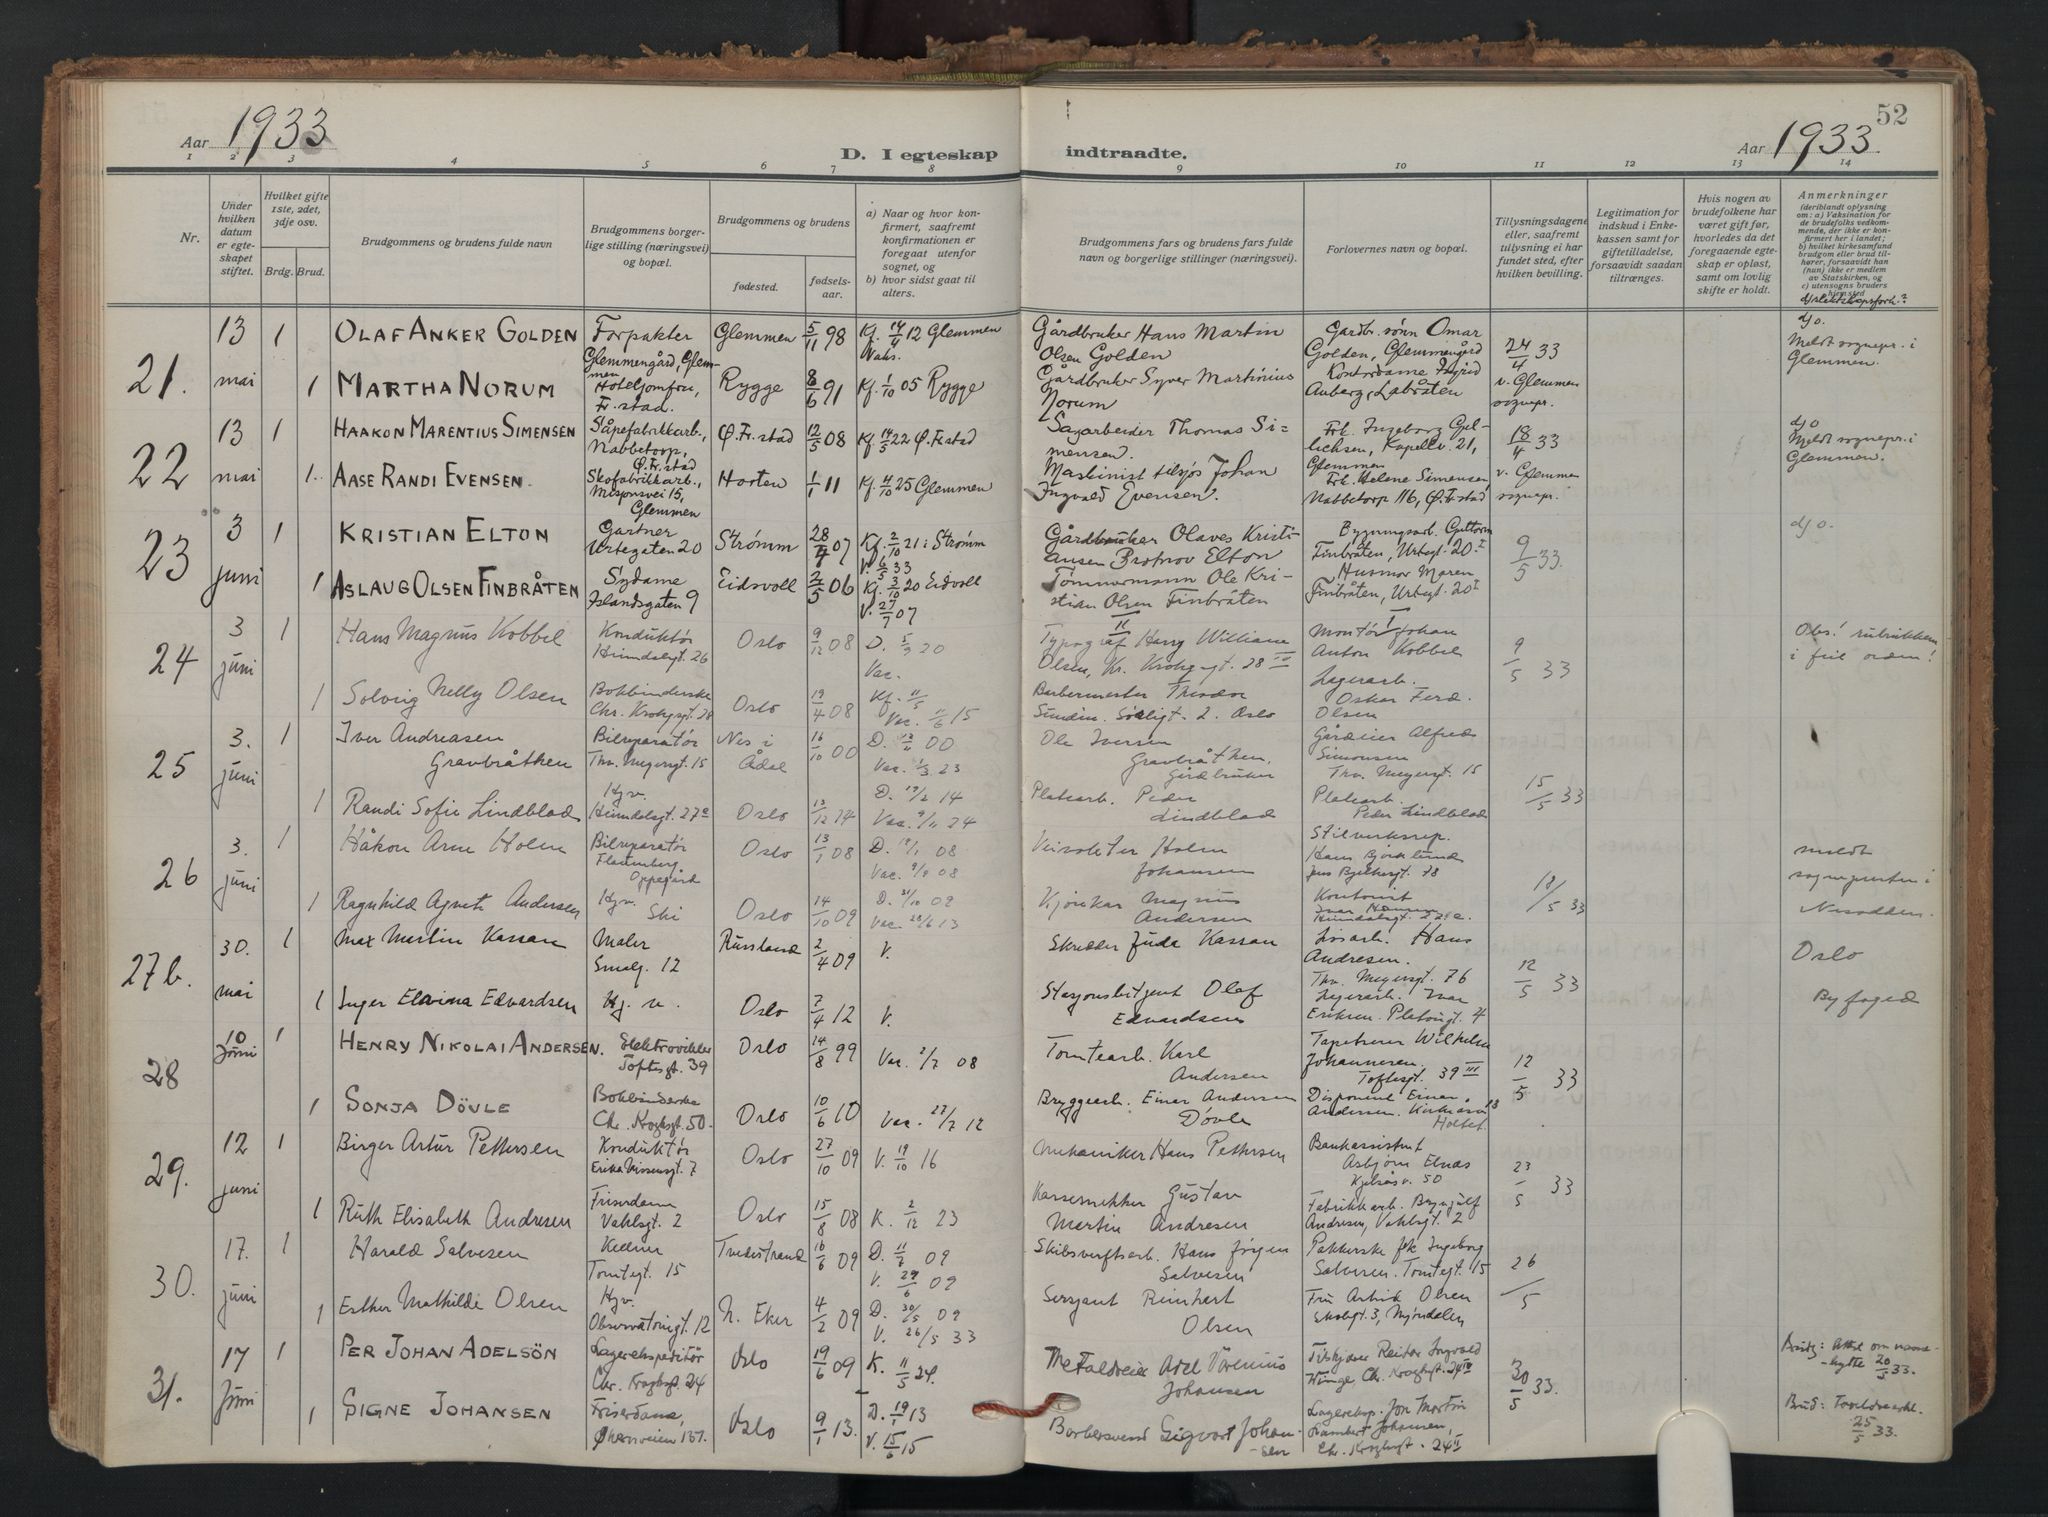 52
Aar 1933
D. I egteskap indtraadte.
Aar 1933
1 2 3 4 5 6 7 8 9 10 11 12 13 14
Nr.
Under hvilken datum er egteskapet stiftet.
Hvilket gifte 1ste, 2det, 3dje osv.
Brdg. Brud.
Brudgommens og brudens fulde navn
Brudgommens borgerlige stilling (næringsvei) og bopæl.
Brudgommens og brudens
fødested. fødselsaar.
a) Naar og hvor konfirmert, saafremt konfirmationen er foregaat utenfor sognet, og
b) hvor sidst gaat til alters.
Brudgommens fars og brudens fars fulde navn og borgerlige stillinger (næringsvei).
Forlovernes navn og bopæl.
Tillysningsdagene eller, saafremt tillysning ei har fundet sted, efter hvilken bevilling.
Legitimation for indskud i Enkekassen samt for giftetilladelse, forsaavidt saadan tiltrænges.
Hvis nogen av brudefolkene har været gift før, hvorledes da det foregaaende egteskap er opløst, samt om lovlig skifte er holdt.
Anmerkninger
(deriblandt oplysning om: a) Vaksination for de brudefolks vedkommende, der ikke er konfirmert her i landet; b) hvilket kirkesamfund brudgom eller brud tilhører, forsaavidt han (hun) ikke er medlem av Statskirken, og c) utensogns bruders hjemsted
d) slektskapsforh.?
21. 13 mai 1 OLAF ANKER GOLDEN Forpakter Glemmengård, Glemmen Glemmen 5/11 98 Kf. 14/4 12 Glemmen Vaks. Gårdbruker Hans Martin Olsen Golden Gardbr. sønn Omar Golden, Glemmengård 24/4 33 d/o. Meldt sognepr. i Glemmen.
1 MARTHA NORUM Hoteljomfru, Fr.stad. Rygge 8/6 91 Kf. 1/10 05 Rygge Gårdbruker Syver Martinius Norum Kontordame Ingrid v. Glemmen sognepr.
22 13 mai 1 HAAKON MARENTIUS SIMENSEN Såpefabrikkarb., Nabbetorp, Ø.Fr.stad Ø.Fr.stad 12/5 08 Kf. 14/5 22 Ø.Fr.stad Sagarbeider Thomas Simensen. Frk. Ingeborg Gellichsen, Kapellv. 21, Glemmen 18/4 33 d/o Meldt sognepr. i Glemmen.
1 AASE RANDI EVENSEN. Skofabrikkarb., Misjonsvei 15, Glemmen Horten 1/1 11 Kf. 4/10 25 Glemmen Maskinist tilsjøs Johan Ingvald Evensen. Frk. Helene Simensen, Nabbetorp 116, Ø.Fr.stad v. Glemmen sognepr.
23 3 juni 1 KRISTIAN ELTON Gartner Urtegaten 20 Strømm 28/4 07 Kf. 2/10 21 i Strømm V. 6/5 33 Gårdbruker Olaves Kristiansen Elton Bygningsarb. Guttorm Finbråten, Urtegt. 20 I 9/5 33. d/o.
1 ASLAUG OLSEN FINBRÅTEN Sydame Islandsgaten 9 Eidsvoll 2/5 06 Kf. 3/10 20 Eidsvoll V. 27/7 07 Tømmermann Ole Kristian Olsen Finbråten Husmor Maren Finbråten, Urtegt. 20 I
24 3 juni 1 Hans Magnus Kobbel Konduktør Heimdalsgt. 26 Oslo 9/12 08 D. 5/9 20 Vac. II Typograf Harry William Olsen, Kr. Krohgsgt. 28 I Montør Johan Anton Kobbel 9/5 33 Obs! rubrikken i feil orden!
1 Solveig Nelly Olsen Bokbinderske Chr. Krohgsgt. 28 Oslo 19/4 08 Kf. 11/5 Vac. 11/6 15 Barbermester Lagerarb. Oskar Ferd. Olsen
25 3. juni 1 Iver Andreasen Gravbråthen Bilreparatør Thv. Meyersgt. 15 Nes i Ådal 16/10 00 D. 00 Vac. 1/3 23 Ole Iversen Gravbråthen, Gårdbruker Gårdeier Alfred Simonsen Thv. Meyersgt. 15 15/5 33
1 Randi Sofie Lindblad Hgv. Heimdalsgt. 27a Oslo 13/12 D. 19/2 14 Vac. 9/11 24 Platearb. Peder Lindblad Platearb. Peder Lindblad
26 3. juni 1 Håkon Arne Holm Bilreparatør Oppegård Oslo 13/1 08 D. 19/1 08 Vac. 9/9 08 Holm Johansen Hans Bjørklund Jens Bjelkesgt. 78 18/5 33 meldt sognepresten i Nesodden.
1 Ragnhild Agnete Andersen Hgv. Ski Oslo 14/10 09 D. 31/10 09 Vac. 28/6 13 Magnus Andersen Kontorist
27b. 30. mai 1 Max Martin Kassan Maler Smalg. 12 Russland 2/4 09 V. Skredder Juda Kassan Hans Andresen. Thv. Meyersgt. 76 12/5 33 Oslo
1 Inger Elvina Edvardsen Hj. v. Oslo 2/4 12 V. Stasjonsbetjent Olaf Edvardsen Lagerarb. Ivar Eriksen. Platousgt. 4 Byfoged
28 10 Juni 1 HENRY NIKOLAI ANDERSEN. Elektrovikler Toftesgt. 39 Oslo 14/8 99 Vac. 2/7 08 Tomtearb. Karl Andersen Tapetserer Wilhelm Johannesen, Toftesgt. 39 III 12/5 33
1 SONJA DÖVLE Bokbinderske Chr. Kroghsgt. 50. Oslo 10/6 10 Vac. 27/7 12 Bryggearb. Einar Andersen Dövle Disponent Einar Andersen.
29. 12 juni 1 Birger Artur Pettersen Konduktør Oslo 27/10 09 V. 19/10 16 Mekaniker Hans Pettersen Bankassistent Asbjørn Elnæs Kjelsåsv. 50 23/5 33
1 Ruth Elisabeth Andresen Friserdame Vahlsgt. 2 Oslo 15/8 08 K. 2/12 23 Kassesnekker Gustav Martin Andresen Fabrikkarb. Brynjulf Andresen, Vahlsgt. 2
30. 17. juni 1 Harald Salvesen Kelner Tomtegt. 15 Tvedestrand 16/6 09 D. 11/7 09 V. 29/6 09 Skibsverftsarb. Hans Jörgen Salvesen Pakkerske frk Ingeborg Salvesen. Tomtegt. 15 26/5
1 Esther Mathilde Olsen Hgv. Observatoriegt. 12 N. Eker 4/2 09 D. 30/5 09 V. 26/5 33 Sersjant Reinhart Olsen Fru Astrid Olsen Skolegt. 3, Mjøndalen
31. 17 Juni 1 PER JOHAN ADELSÖN Lagerekspeditör Chr. Kroghsgt. 24 Oslo 19/6 09 K. 11/5 24. Axel Johansen Reidar Ingvald Winge, Chr. Kroghsgt. 24 IV 30/5 33. Brudg: Attest om navnebytte 20/5 33.
1 SIGNE JOHANSEN Friserdame, Ekebergveien 137. Oslo 9/1 13. D. 19/1 13 V. 15/6 15 Barbersvend Sigvart Johansen Lagereksp. Jon Martin Lambert Johansen, Chr. Kroghsgt. 24 II Brud: 25/5 33.